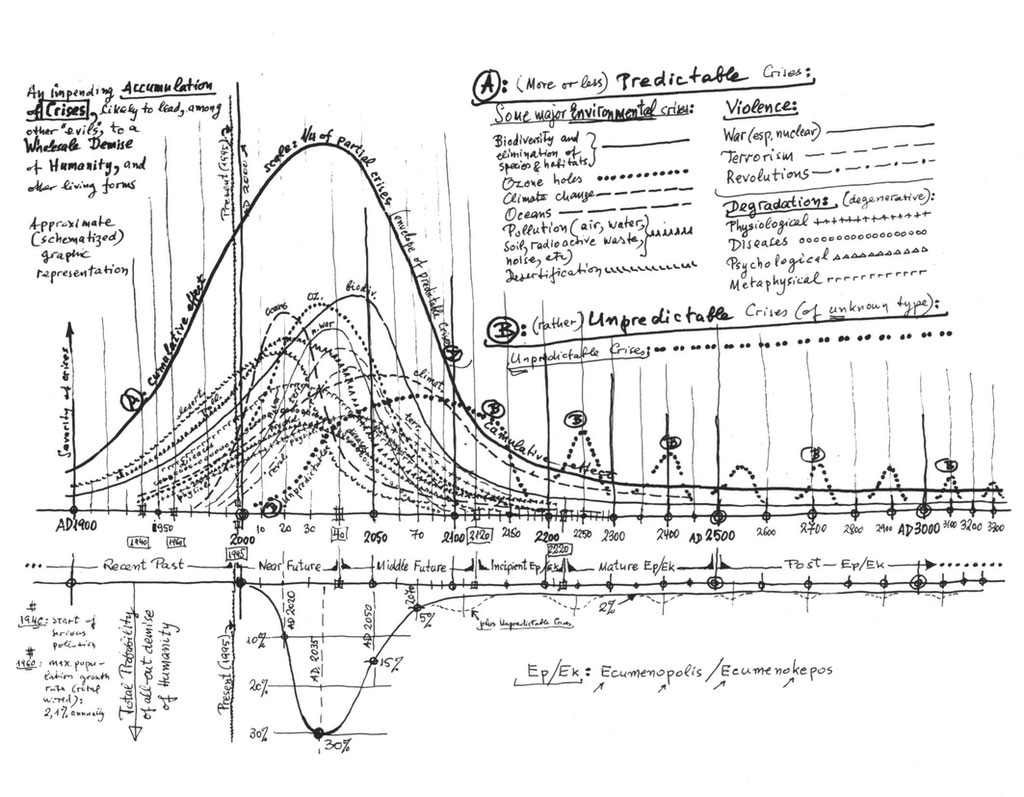 An impending Accumulation
of Crises, likely to lead, among
other "evils", to a
Wholesale Demise
of Humanity, and
other living forms
Approximate
(schematized)
graphic
representation
Severity of crises
A: cumulative effect
scale: 1/4 of partial crises
envelope of predictable crises
Present (1995)
AD 2000
A: (More or less) Predictable Crises:
Some major Environmental crises:
Biodiversity and
elimination of
species & habitats,
Ozone holes
Climate change
Oceans
Pollution (air, water,
Soil, radioactive waste,
noise, etc)
Desertification
Violence:
War (esp. nuclear)
Terrorism
Revolutions
Degradation: (degenerative):
Physiological
Diseases
Psychological
Metaphysical
B: (rather) Unpredictable Crises (of unknown type):
Unpredictable Crises:
Oceans
OZ.
biodiv.
n. war
climat.
desert
terr.
revol.
Unpredictable
A
B
cumulative effect
B
B
B
B
B
AD1900
1950
2000
10
20
30
2050
70
2100
2150
2200
2300
2400
AD 2500
2600
2700
2800
2900
AD 3000
3100
3200
3300
1940
1960
1995
40
2120
2220
Recent Past
Near Future
Middle Future
Incipient Ep/Ek
Mature Ep/Ek
Post-Ep/Ek
# 1940: start of
serious
pollution
# 1960: max. popu-
lation growth
rate (total
world):
2,1% annually
Total Probability
of all-out demise
of Humanity
Present (1995)
AD 2020
AD 2035
AD 2050
2070
10%
20%
30%
30%
15%
5%
2%
plus Unpredictable Crises
Ep/Ek: Ecumenopolis / Ecumenokepos